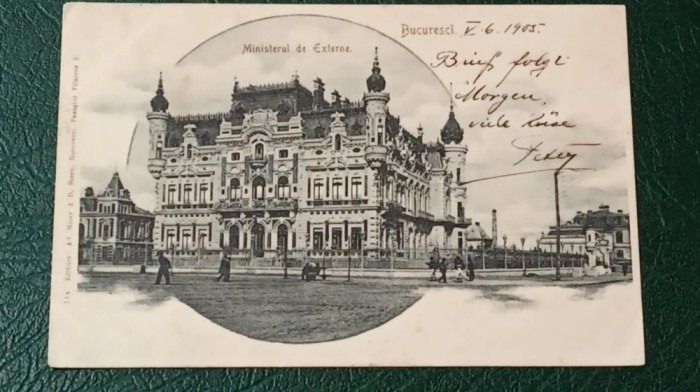 Bucuresci. V. 6. 1905.
Ministerul de Externe.
Brief folgt
Morgen,
viele Küsse
114 Editura Ad. Maier & D. Stern, Bucuresci, Pasagiul Vilacros